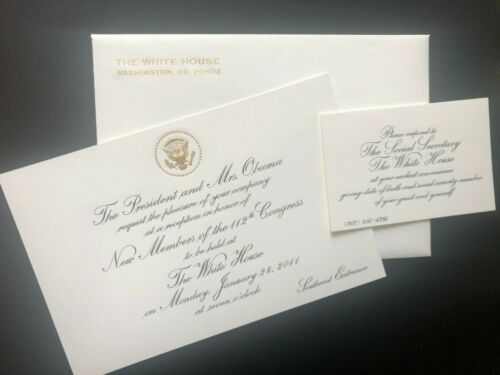 THE WHITE HOUSE
WASHINGTON, DC 20502
The President and Mrs. Obama
request the pleasure of your company
at a reception in honor of
New Members of the 112th Congress
to be held at
The White House
on Monday, January 2011
at seven o'clock
Southeast Entrance
Please respond to
The Social Secretary
The White House
at your earliest convenience
giving date of birth and social security number
of your guest and yourself
(202)